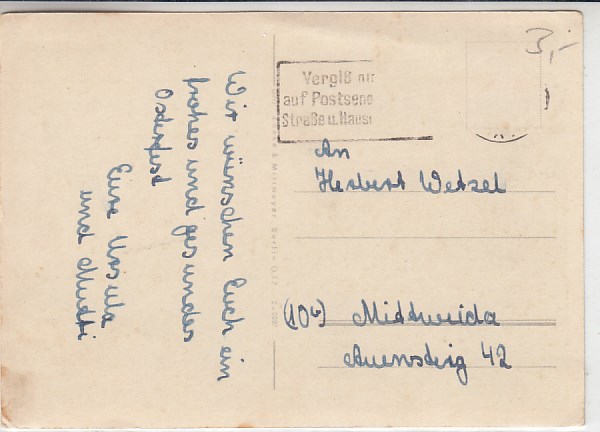 Wir wünschen Euch ein
frohes und gesundes
Osterfest
Eure Ursula
und Mutti
Vergiß nic
auf Postsend
Straße u. Haus
3,-
An
Herbert Wetzel
(10b) Mittweida
Auensteig 42
& Mittmeyer Berlin